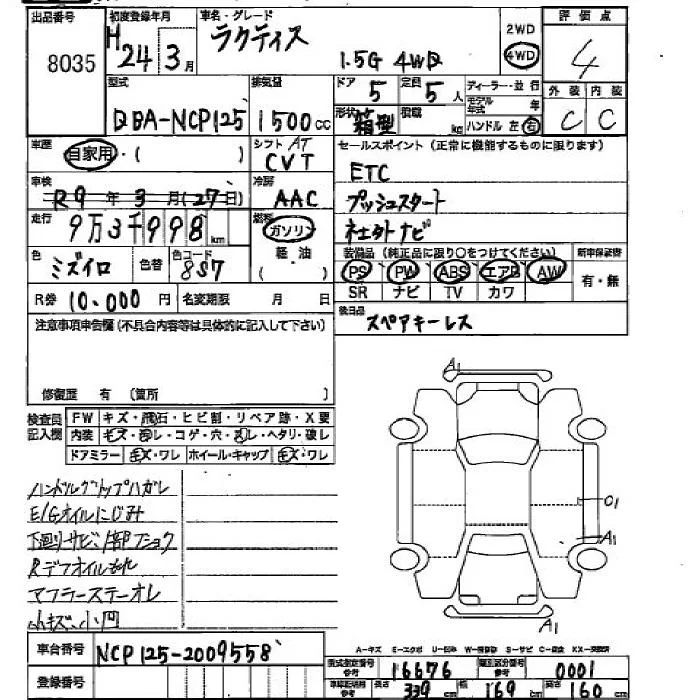 出品番号 初度登録年月 車名・グレード 評価点
8035 H24年3月 ラクティス 1.5G 4WD 2WD 4WD 4
型式 排気量 ドア 5 定員 5人 ディーラー・並行 外装 内装
DBA-NCP125 1500cc 形状 箱型 積載 kg モデル年式 年 ハンドル 左 右 C C
車歴 自家用・( ) シフト AT CVT セールスポイント(正常に機能するものに限ります)
車検 R9年3月(27日) 冷房 AAC ETC
プッシュスタート
走行 9万3千998km 燃料 ガソリン 軽油 ( ) 社外ナビ
色 ミズイロ 色替 色コード 8S7 装備品(純正品に限り○をつけてください) 新車保証書
PS PW ABS エアB AW 有・無
SR ナビ TV カワ
R券 10.000円 名変期限 月 日 後日品 スペアキーレス
注意事項申告欄(不具合内容等は具体的に記入して下さい)
修復歴 有 (箇所 )
検査員記入欄 FW キズ・飛石・ヒビ割・リペア跡・X要
内装 キズ・汚レ・コゲ・穴・スレ・ヘタリ・破レ
ドアミラー キズ・ワレ ホイール・キャップ キズ・ワレ
ハンドルグリップハガレ
E/Gオイルにじみ
下廻りサビ、1部フショク
Rデフオイルもれ
マフラーステーオレ
小キズ、小凹
A1
O1
A1
A1
A-キズ E-エクボ U-凹み W-補修跡 S-サビ C-腐食 XX-交換済
車台番号 NCP125-2009558
型式指定番号 参考 16676 類別区分番号 参考 0001
登録番号 車検証明細 参考 長さ 339cm 幅 169cm 高さ 160cm